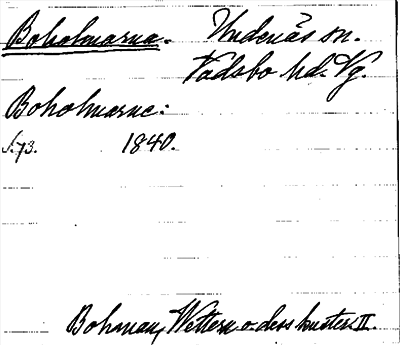 Boholmarna. Undenäs sn.
Vadsbo hd. Vg.
Boholmarne:
s. 73. 1840.
Bohman, Wettern o. dess kuster II.